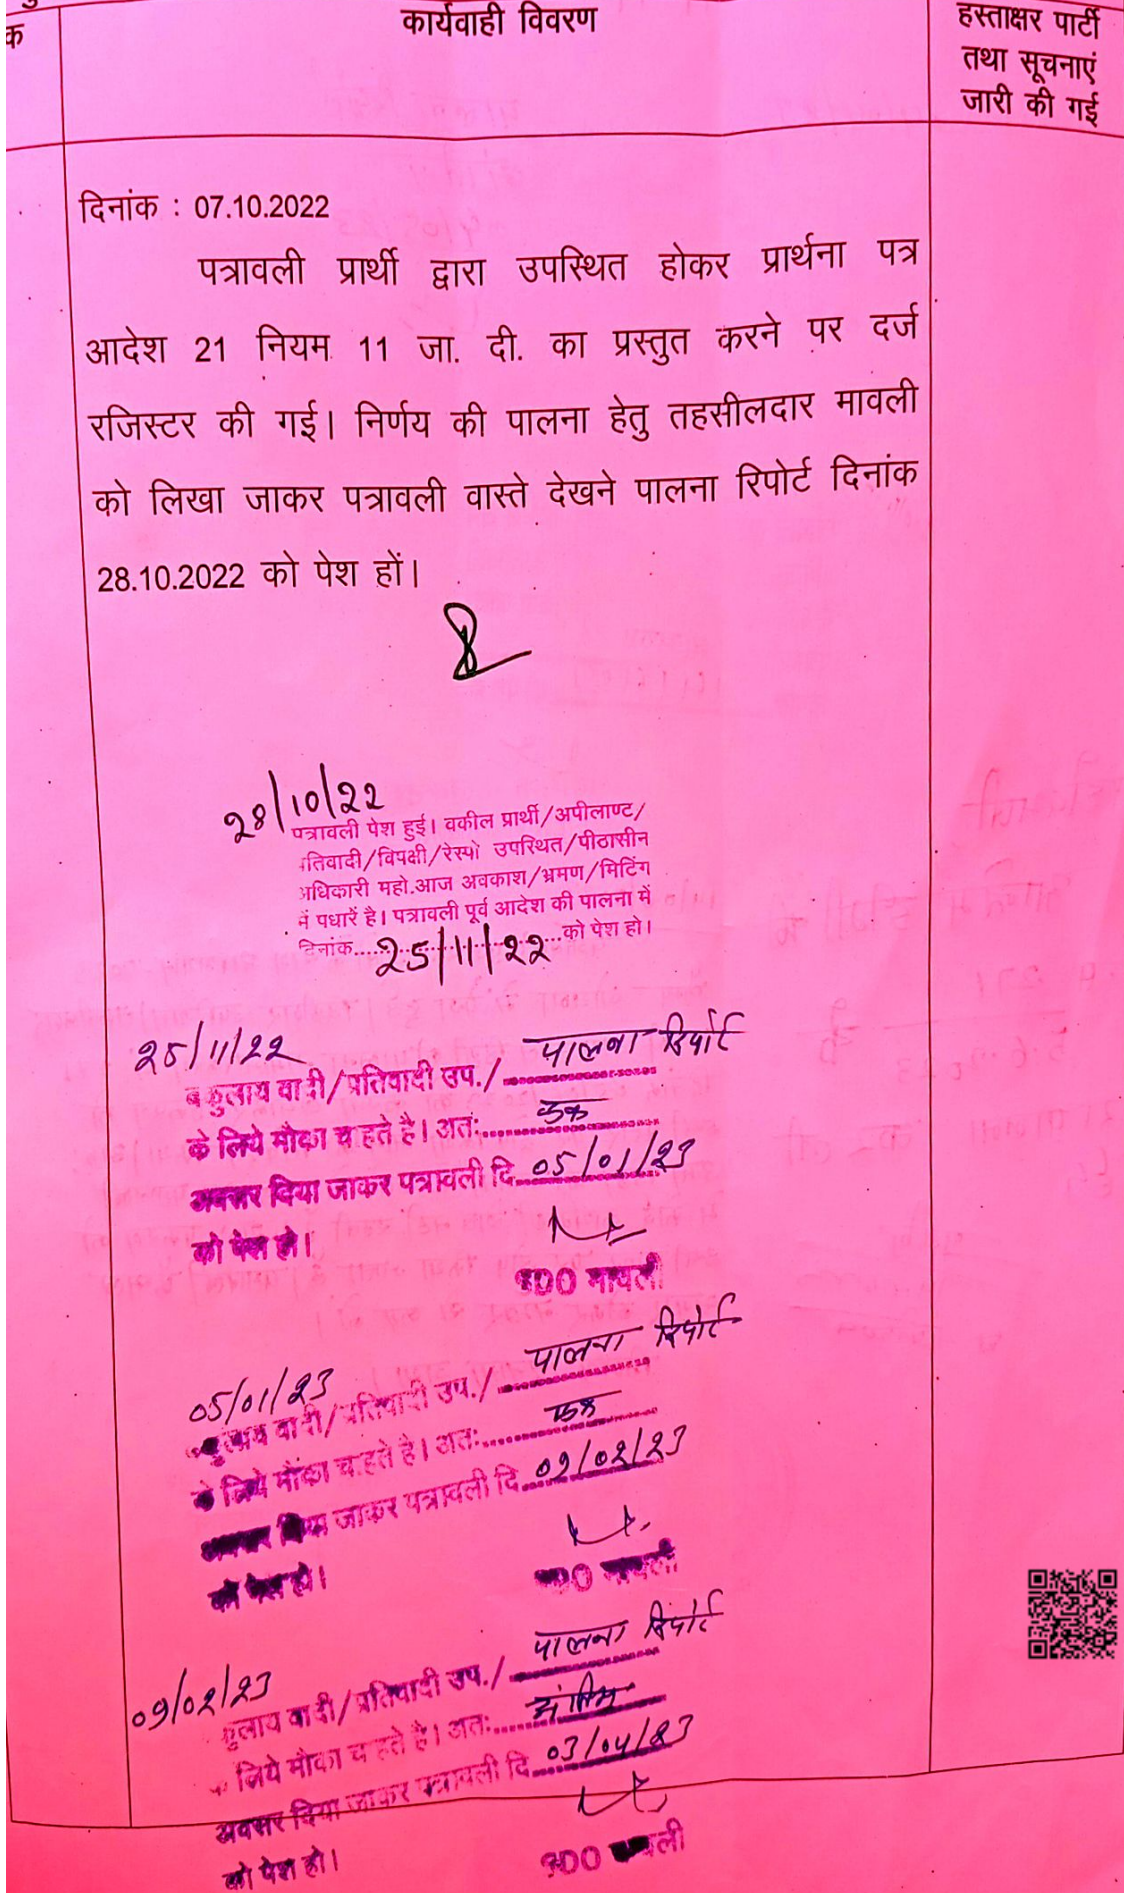 क
कार्यवाही विवरण
हस्ताक्षर पार्टी
तथा सूचनाएं
जारी की गई
दिनांक : 07.10.2022
पत्रावली प्रार्थी द्वारा उपस्थित होकर प्रार्थना पत्र
आदेश 21 नियम 11 जा. दी. का प्रस्तुत करने पर दर्ज
रजिस्टर की गई। निर्णय की पालना हेतु तहसीलदार मावली
को लिखा जाकर पत्रावली वास्ते देखने पालना रिपोर्ट दिनांक
28.10.2022 को पेश हों।
28/10/22
पत्रावली पेश हुई। वकील प्रार्थी/अपीलाण्ट/
तिवादी/विपक्षी/रेस्पो उपस्थित/पीठासीन
अधिकारी महो.आज अवकाश/भ्रमण/मिटिंग
में पधारें है। पत्रावली पूर्व आदेश की पालना में
दिनांक....25/11/22....को पेश हो।
25/11/22
वादी/प्रतिवादी उप./ पालना रिपोर्ट
के लिये मौका च हते है। अतः....एक
अवसर दिया जाकर पत्रावली दि. 05/01/23
को पेश हो।
SDO मावली
05/01/23
वादी/प्रतिवादी उप./ पालना रिपोर्ट
के लिये मौका च हते है। अतः....एक
अवसर दिया जाकर पत्रावली दि. 09/02/23
को पेश हो।
मावली
09/02/23
वादी/प्रतिवादी उप./ पालना रिपोर्ट
लिये मौका च हते है। अतः....अंतिम
अवसर दिया जाकर पत्रावली दि. 03/04/23
को पेश हो।
SDO